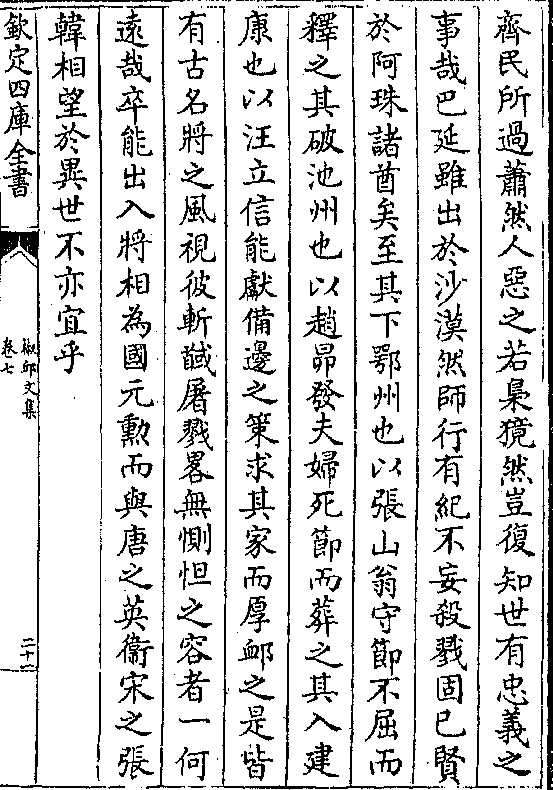 齊民所過蕭然人惡之若梟獍然豈復知世有忠義之
事哉巴延雖出於沙漠然師行有紀不妄殺戮固已賢
於阿珠諸酋矣至其下鄂州也以張山翁守節不屈而
釋之其破池州也以趙昴發夫婦死節而葬之其入建
康也以汪立信能獻備邊之策求其家而厚卹之是皆
有古名將之風視彼斬馘屠戮畧無惻怛之容者一何
遠哉卒能出入將相為國元勲而與唐之英衞宋之張
韓相望於異世不亦宜乎
欽定四庫全書
椒邱文集
卷七
二十二